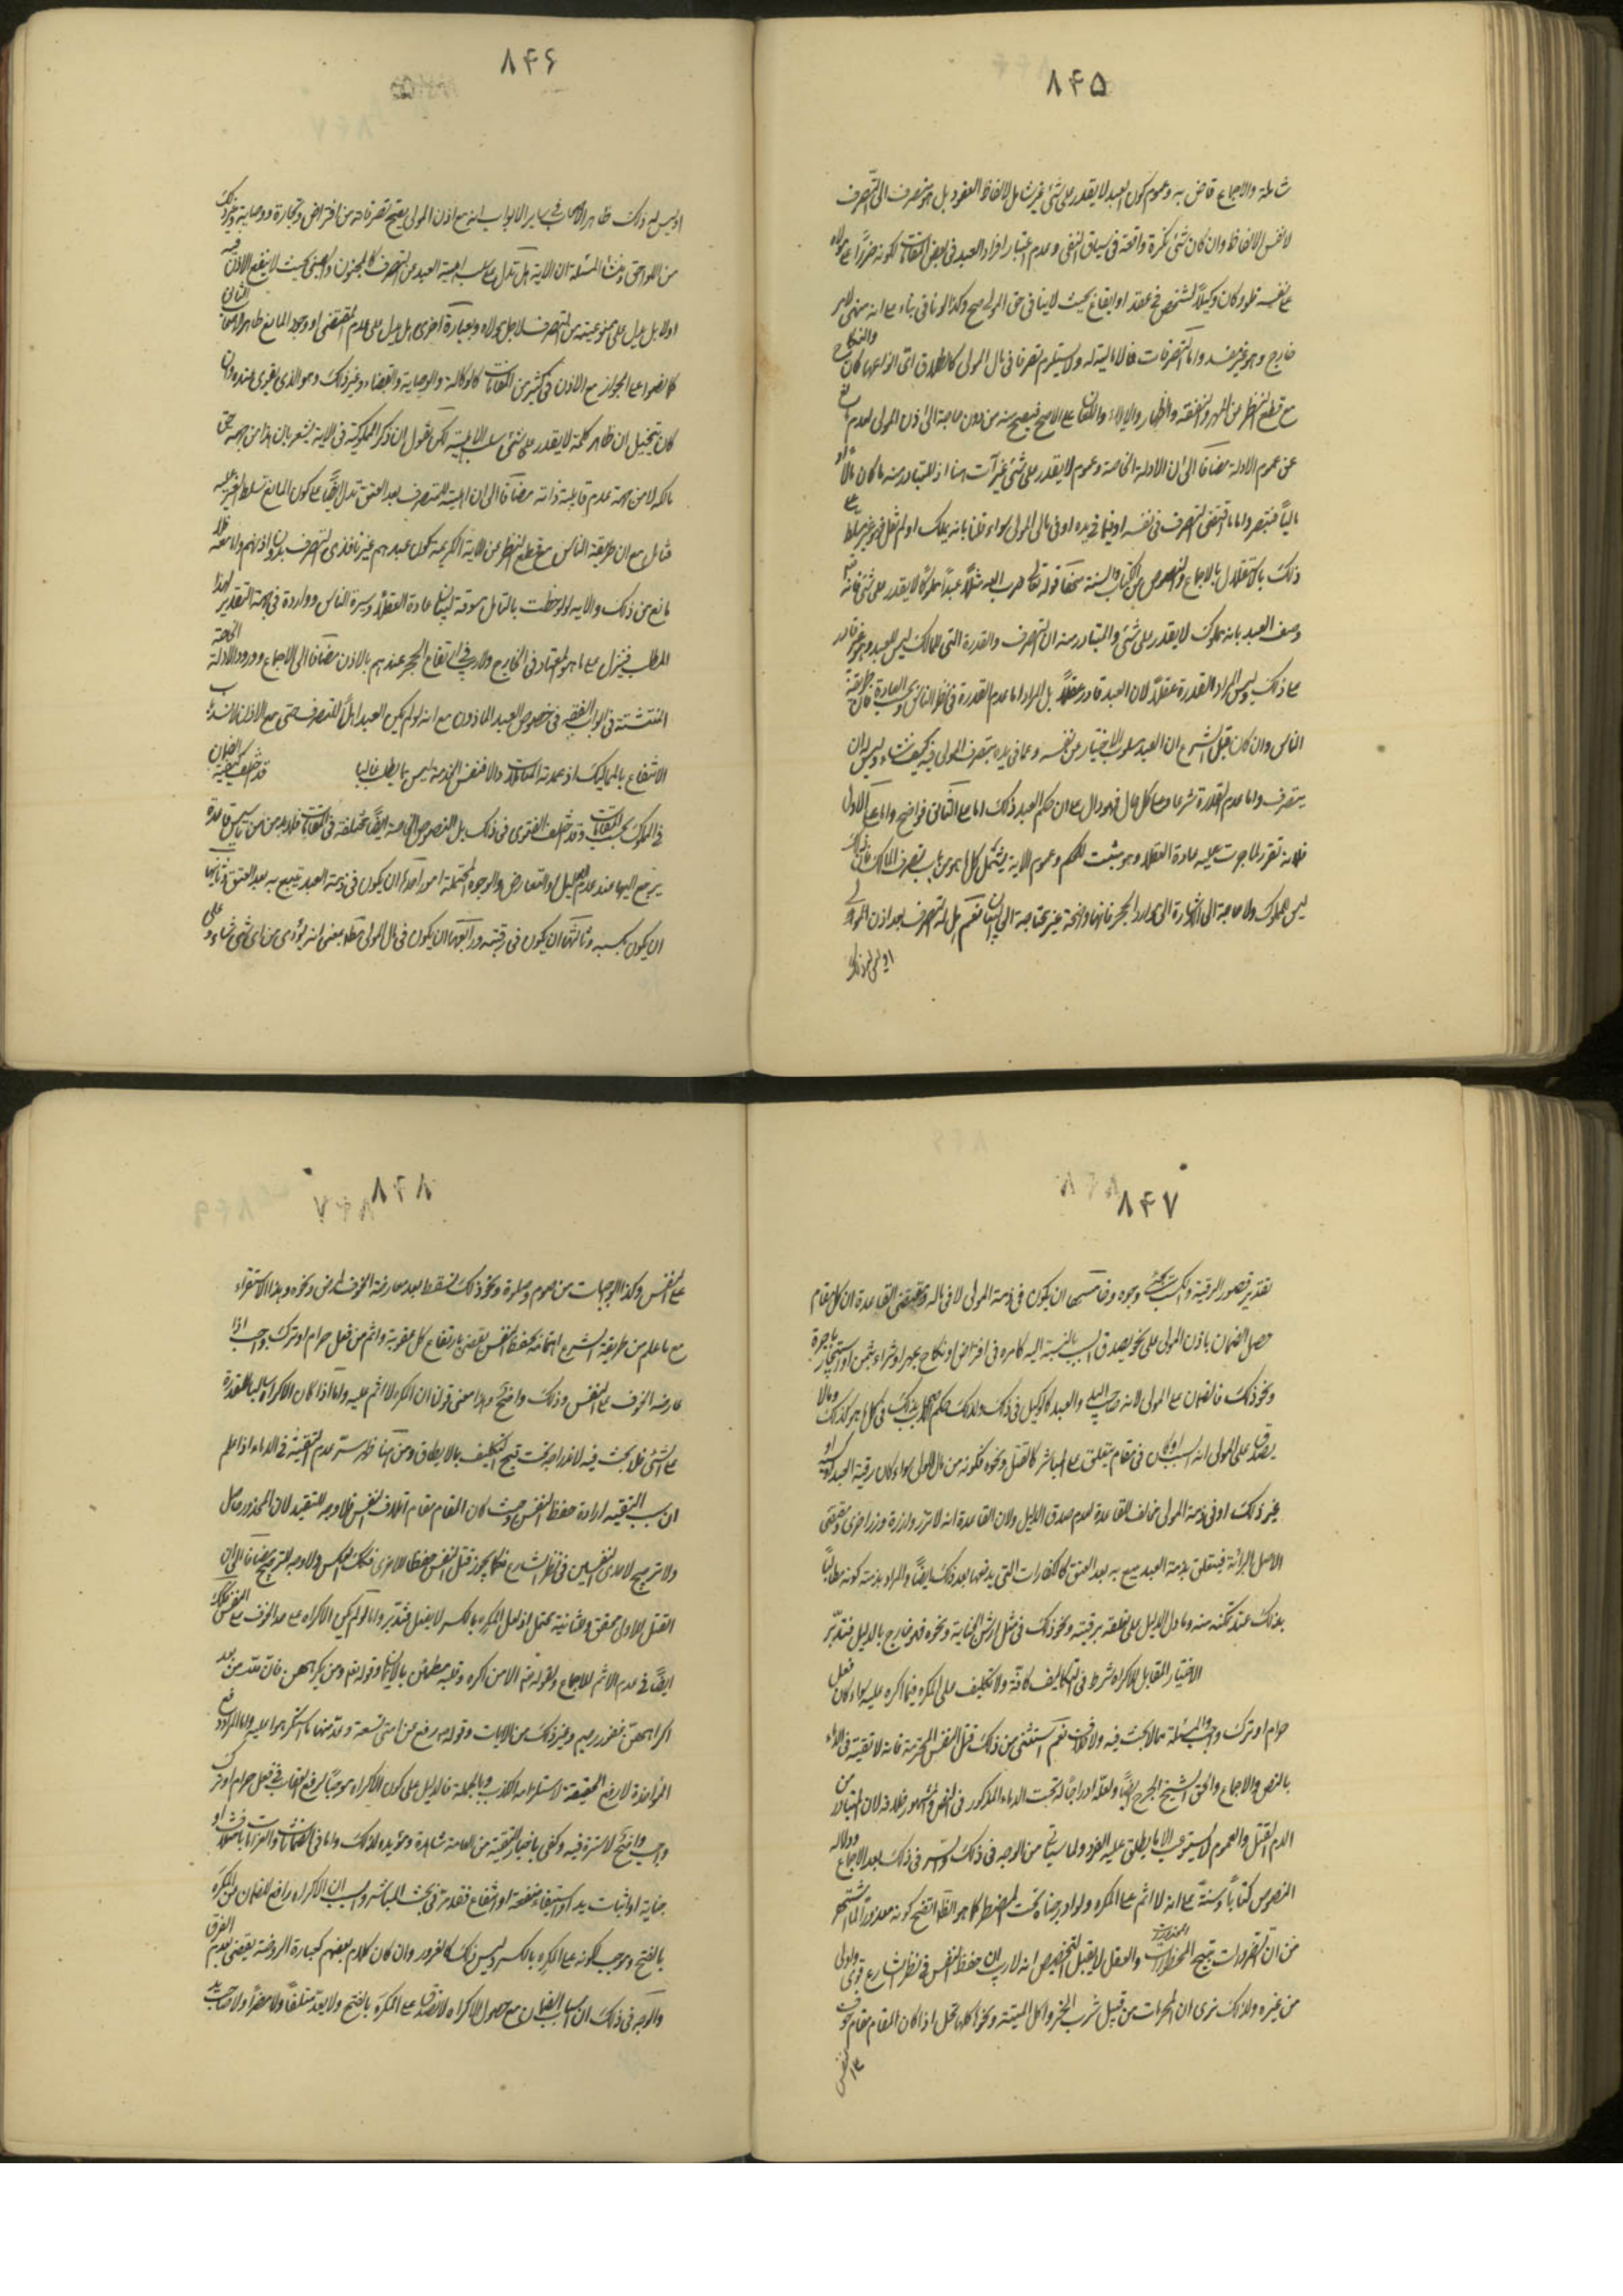 ۸۴۵
شاملة والاجماع قاض به وعموم كون العبد لا يقدر على شئ غير شامل لالفاظ العقود بل هو منصرف الى التصرف
لا نفس الالفاظ وان كان شئ نكرة واقعة في سياق النفى وعدم اعتبار اقرار العبد في بعض المقامات لكونه ضررا على مولاه
على نفسه فلو كان وكيلا لشخص في عقد او ايقاع بحيث لا ينافي حق المولى صح وكذا لو نافى بناء على انه منهى لامر
خارج وهو غير مفسد واما التصرفات فما لا مالية له ولا يستلزم تصرفا في مال المولى كالطلاق اى انواعها كان والنكاح
مع قطع النظر عن المهر والنفقة والظهار والايلاء واللعان على الاصح فيصح منه من دون حاجة الى اذن المولى لعدم مانع
عن عموم الادلة مضافا الى ان الادلة الخاصة وعموم لا يقدر على شئ غير آت هنا اذ المتبادر منه ما كان مالا او
ماليا فتبصر واما ما اقتضى التصرف في نفسه او فيما في يده او في مال المولى سواء قلنا بانه يملك او لم نقل فهو غير مسلط على
ذلك بالاستقلال بالاجماع والنصوص من الكتاب والسنة قوله تعالى ضرب الله مثلا عبدا مملوكا لا يقدر على شئ فانه
وصف العبد بانه مملوك لا يقدر على شئ والمتبادر منه ان التصرف والقدرة التى للمالك ليس للعبد وهو غير قادر
على ذلك وليس المراد القدرة عقلا لان العبد قادر عقلا بل المراد اما عدم القدرة في نظر الناس وبحسب العادة فان طريقة
الناس وان كان قبل الشرع ان العبد مسلوب الاختيار من نفسه وعما في يده يتصرف المولى فيه كيف شاء وليس له ان
يتصرف واما عدم القدرة شرعا وعلى كل حال فهو دال على ان حكم العبد ذلك اما على الثانى فواضح واما على الاول
فلانه تقرير لما جرت عليه عادة العقلاء وهو مثبت للحكم وعموم الاية يشمل كل ما هو من باب تصرف الملاك فان ذلك
ليس للمملوك ولا حاجة الى الاشارة الى موارد الحجر فانها واضحة غير محتاجة الى البيان نعم هل له التصرف بعد اذن المولى
او ليس له ذلك
۸۴۶
او ليس له ذلك ظاهر الاصحاب في ساير الابواب انه مع اذن المولى يصح تصرفاته من اقتراض وتجارة ووصاية وغير ذلك
من اللواحق ومنشأ المسئلة ان الاية هل تدل على سلب اهلية العبد من التصرف كالمجنون والصبى بحيث لا ينفع الاذن فيه
اولا بل يدل على ممنوعيته من التصرف لاجل مولاه وبعبارة اخرى هل يدل على عدم المقتضى او وجود المانع ظاهر الاصحاب الثانى
كما نصوا على الجواز مع الاذن في كثير من المقامات كالوكالة والوصاية والقضاء وغير ذلك وهو الذى يقوى عنده وان
كان يتخيل ان ظاهر كلمة لا يقدر على شئ سلب الاهلية لكن نقول ان ذكر المملوكية في الاية يشعر بان هذا من جهة حق
مالكه لا من جهة عدم قابلية ذاته مضافا الى ان اهليته للتصرف بعد العتق تدل ايضا على كون المانع تسلط الغير عليه
فتأمل مع ان طريقة الناس مع قطع النظر عن الاية الكريمة كون عبدهم غير نافذى التصرف بدون اذنهم واما معه فلا
مانع من ذلك والاية لو لوحظت بالتأمل مسوقة لبيان عادة العقلاء وسيرة الناس وواردة في جهة التقدير لهذا
المطلب فينزل على ما هو المعتاد في الخارج ولا ريب في ارتفاع الحجر عندهم بالاذن مضافا الى الاجماع وورود الادلة الخاصة
المنتشتة في ابواب الفقه في خصوص العبد الماذون مع انه لو لم يكن العبد اهلا للتصرف حتى مع الاذن لانسد باب
الانتفاع بالمماليك اذ عمدته المعاملات والا فنفس الخدمة ليس مما يطلب غالبا قد اختلف كيفية الضمان
في المملوك بحسب المقامات وقد اختلف الفتوى في ذلك بل النصوص الخاصة ايضا مختلفة في المقامات فلا بد من تاسيس قاعدة
يرجع اليها عند عدم الدليل او التعارض والوجوه المحتملة امور احدها ان يكون في ذمة العبد يتبع به بعد العتق وثانيها
ان يكون بكسبه وثالثها ان يكون في رقبته ورابعها ان يكون في مال المولى مطلقا بمعنى انه يؤدى من اى شئ شاء وعلى
۸۴۷
تقدير قصور الرقبة والكسب يجئ وجوه وخامسها ان يكون في ذمة المولى لا في ماله ومقتضى القاعدة ان كل مقام
حصل الضمان باذن المولى على نحو يصدق السبب بالنسبة اليه كامره في اقتراض او نكاح بمهر او شراء بثمن او استيجار باجرة
ونحو ذلك فالضمان على المولى لانه صاحب اليد والعبد كالوكيل في ذلك ولذلك حكم الاصحاب بذلك في كل ما هو كذلك وما لا
يصدق على المولى انه السبب وكان في مقام يتعلق على المباشر كالقتل ونحوه فكونه من مال المولى سواء كان رقبة العبد او كسبه او
غير ذلك او في ذمة المولى مخالف للقاعدة لعدم صدق الدليل ولان القاعدة انه لا تزر وازرة وزر اخرى ومقتضى
الاصل البرائة فيتعلق بذمة العبد يتبع به بعد العتق كالكفارات التى يدفعها بعد ذلك ايضا والمراد بذمته كونه مطالبا
بذلك عند تمكنه منه وما دل الدليل على تعلقه برقبته ونحو ذلك في مثل ارش الجناية ونحوه فهو خارج بالدليل فتدبر
الاختيار المقابل للاكراه شرط في التكاليف كافة ولا تكليف على المكره فيما اكره عليه سواء كان فعل
حرام او ترك واجب والمسئلة مما لا بحث فيه ولا شك نعم استثنى من ذلك قتل النفس المحترمة فانه لا تقية في الدماء
بالنص والاجماع والحق الشيخ الجرح ايضا ولعله ادراجا له تحت الدماء المذكور في النص والمشهور خلافه لان المتبادر من
الدم القتل والعموم لا يستوعب الا ما يطلق عليه الفرد ولما سياتى من الوجه في ذلك والسر في ذلك بعد الاجماع ودلالة
النصوص كتابا وسنة على انه لا اثم على المكره ولو ادرجناه تحت المضطر كما هو الظاهر اتضح كونه معذورا لما اشتهر
من ان الضرورات تبيح المحظورات والعقل لا يقبل التخصيص انه لا ريب ان حفظ النفس في نظر الشارع اقوى واولى
من غيره ولذلك نرى ان المحرمات من قبيل شرب الخمر واكل الميتة ونحوها كلها تحل اذا كان المقام مقام خوف
على نفس
۸۴۸
على النفس وكذا الواجبات من صوم وصلوة ونحو ذلك تسقط بعد معارضة الخوف لمرض ونحوه وهذا الاستقراء
مع ما علم من طريقة الشرع اهتمامه بحفظ النفس يقضى بارتفاع كل عقوبة واثم من فعل حرام او ترك واجب اذا
عارضه الخوف على النفس وذلك واضح وهذا معنى قولنا ان المكره لا اثم عليه واما اذا كان الاكراه سالبا للقدرة
على الشئ فلا بحث فيه لاندراجه تحت قبح التكليف بما لا يطاق ومن هنا ظهر سر عدم التقية في الدماء اذا علم
ان سبب التقية ارادة حفظ النفس وحيث كان المقام مقام اتلاف النفس فلا وجه للتقية لان المحذور حاصل
ولا ترجيح لاحدى النفسين في نظر الشارع فكما يجوز قتل النفس حفظا للاخرى فكذلك العكس ولا وجه للترجيح مضافا الى ان
القتل الاولى محقق والثانية محتمل اذ لعل المكره بالكسر لا يفعل فتدبر واما لو لم يكن الاكراه على حد الخوف على النفس فكذلك
ايضا في عدم الاثم للاجماع ولقوله تعالى الا من اكره وقلبه مطمئن بالايمان وقوله تعالى ومن يكرههن فان الله من بعد
اكراههن غفور رحيم وغير ذلك من الايات وقوله رفع عن امتى تسعة وعد منها ما استكرهوا عليه والمراد رفع
المؤاخذة لا رفع الحقيقة لاستلزامه الكذب وبالجملة فالدليل على كون الاكراه موجبا لرفع العقاب في فعل حرام او ترك
واجب واضح لا سترة فيه وكفى باخبار التقية من العامة شاهدة ومؤيدة لذلك واما في الضمانات والغرامات باتلاف او
جناية او اثبات يد او استيفاء منفعة او انتفاع فقد مر في بحث المباشر والسبب ان الاكراه رافع للضمان من المكره
بالفتح وموجب لكونه على المكره بالكسر وليس ذلك كالغرور وان كان كلام بعضهم كعبارة الروضة يقضى بعدم الفرق
والوجه في ذلك ان اسباب الضمان مع حصول الاكراه لا تصدق على المكره بالفتح ولا يعد متلفا ولا مضرا ولا صاحب يد